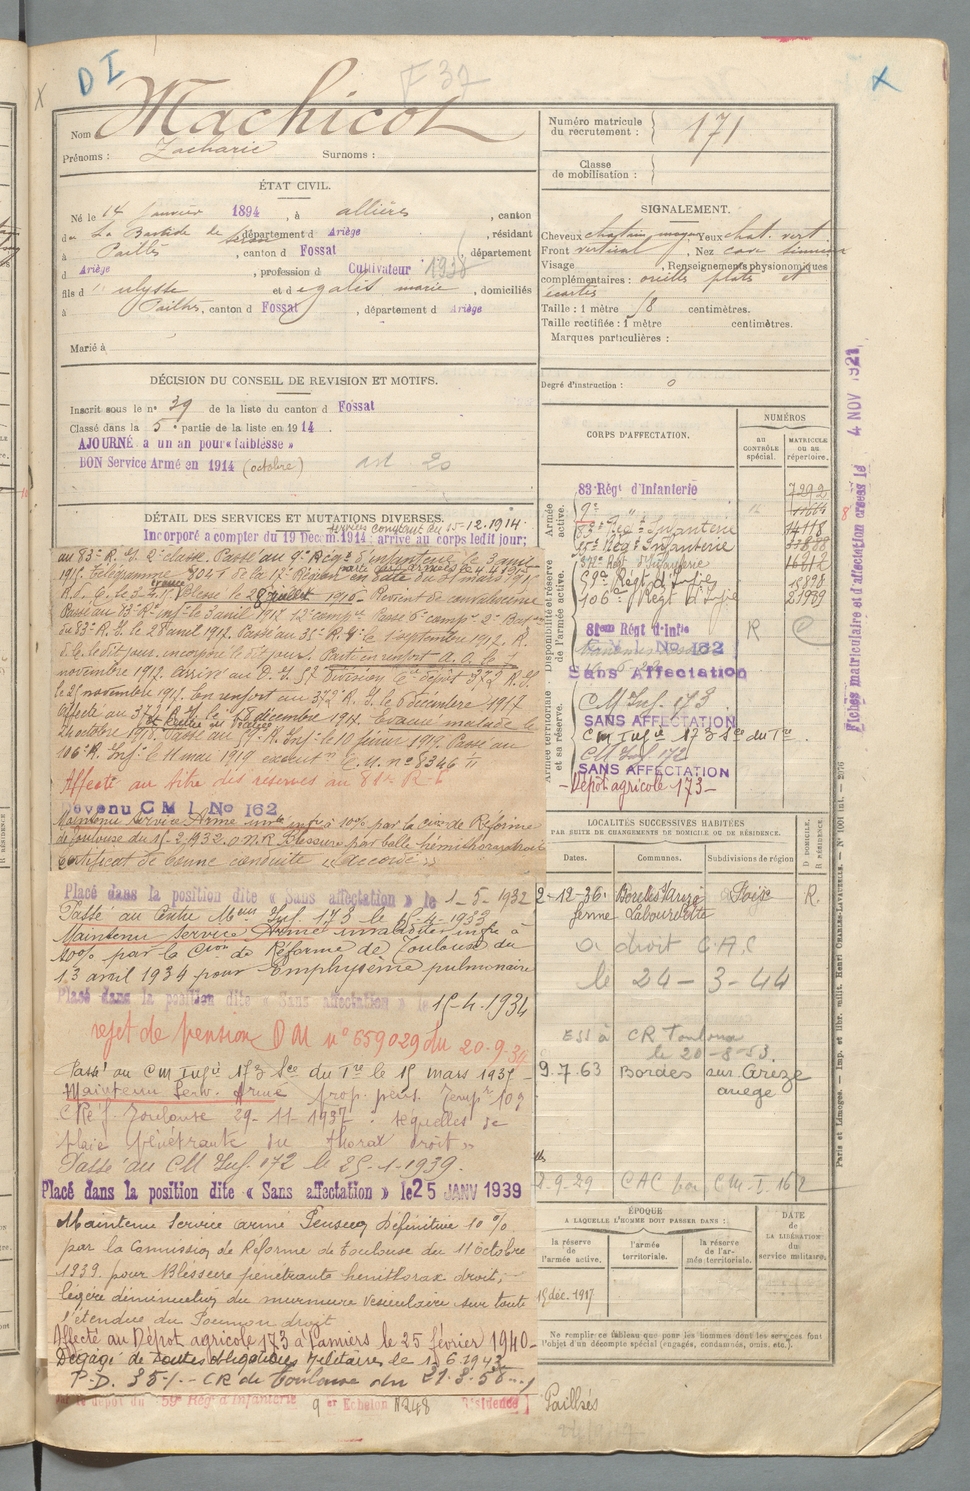 D I
F 37
X
Nom Machicot
Prénoms : Zacharie Surnoms :
ÉTAT CIVIL.
Né le 14 janvier 1894, à allières, canton
de La Bastide de Sérou, département d Ariège, résidant
à Pailhès, canton d Fossat, département
d Ariège, profession d Cultivateur 1938
fils d' ulysse et d egalis marie, domiciliés
à Pailhès, canton d Fossat, département d Ariège
Marié à
DÉCISION DU CONSEIL DE REVISION ET MOTIFS.
Inscrit sous le n° 39 de la liste du canton d Fossat
Classé dans la 5e partie de la liste en 1914.
AJOURNÉ à un an pour « faiblesse »
BON Service Armé en 1914 (octobre) art 20
DÉTAIL DES SERVICES ET MUTATIONS DIVERSES.
services comptant du 15-12.1914
Incorporé à compter du 19 Decem. 1914; arrivé au corps ledit jour;
au 83e R. I. 2e classe. Passé au 9e Rég.t d'infanterie le 3 avril
1915. Télégramme 804 T de la 17e Région en date du 31 mars 1915
Blessé le 28 juillet 1916
Passé au 83e R. Inf.ie le 3 avril 1917. 12e comp.ie Passé 6e comp.ie 2e Bat.on
du 83e R. I. le 28 avril 1917. Passé au 35e R. I. le 1 septembre 1917. R.
d. l. le dit jour. incorporé le dit jour. Parti en renfort a. o. le 1
novembre 1917. au D. I. 57 division 6e dépôt 372 R. I.
le 25 novembre 1917. En renfort au 372e R. I. le 6 décembre 1917
Affecté au 372e R. I. le 18 décembre 1917. Evacué malade le
24 octobre 1918. Passé au 59e R. Inf. le 10 février 1919. Passé au
106e R. Inf. le 11 mai 1919 exécut.n C. M. n° 8346
Affecté au titre des réserves au 81e R. I.
Devenu C M I No 162
Maintenu Service Armé inv.té inf.re à 10% par la C.ion de Réforme
de Toulouse du 15-2-1932. Blessure par balle hémithorax droit
Certificat de bonne conduite « Accordé »
Placé dans la position dite « Sans affectation » le 1-5-1932
Passé au Centre M.on Inf. 173 le 15-4-1933
Maintenu Service Armé invalidité infre à
10% par la C.ion de Réforme de Toulouse du
13 avril 1934 pour Emphysème pulmonaire
Placé dans la position dite « Sans affectation » le 15-4-1934
rejet de pension D M n° 659029 du 20-9-34
Passé au C m Inf.ie 173 S.on du T.re le 15 mars 1937
Maintenu Serv. Armé prop. pens. temp.re 10%
C Réf. Toulouse 29-11-1937. « séquelles de
plaie pénétrante du thorax droit »
Passé au C M Inf. 172 le 25-1-1939.
Placé dans la position dite « Sans affectation » le 25 JANV 1939
Maintenu Service armé Pension Définitive 10%
par la Comission de Réforme de Toulouse du 11 octobre
1939 pour Blessure pénétrante hemithorax droit;
légère diminution du murmure vésiculaire sur toute
l'étendue du Poumon droit
Affecté au Dépôt agricole 173 à Pamiers le 25 février 1940
Dégagé de toutes obligations militaires le 1-6-1943
P. D. 35% - CR de Toulouse du 21.8.58
du dépôt du 59e Rég.t d'Infanterie 9 er Echelon N 248 Résidence Pailhés
Numéro matricule du recrutement : 171
Classe de mobilisation :
SIGNALEMENT.
Cheveux chatain moyen, Yeux chat. vert
Front vertical, Nez cave
Visage , Renseignements physionomiques
complémentaires : oreilles plats et
écartés
Taille : 1 mètre 58 centimètres.
Taille rectifiée : 1 mètre centimètres.
Marques particulières :
Degré d'instruction : 0
CORPS D'AFFECTATION.
NUMÉROS
au CONTRÔLE spécial.
MATRICULE ou au répertoire.
Armée active.
Disponibilité et réserve de l'armée active.
Armée territoriale et sa réserve.
83e Régt d'Infanterie 7292
9e " 11664
83e Régt Infanterie 14118
35e Régt Infanterie
372e Régt d'Infanterie 16212
59e Régt d'Infie 15898
106e Régt d'Infie 21939
81eme Régt d'Infie R
C M I No 162
Sans Affectation
C M Inf. 173
SANS AFFECTATION
C m Inf.ie 173 S.on du T.re
C M Inf 172
SANS AFFECTATION
Dépôt agricole 173
LOCALITÉS SUCCESSIVES HABITÉES
PAR SUITE DE CHANGEMENTS DE DOMICILE OU DE RÉSIDENCE.
Dates. Communes. Subdivisions de région
D. DOMICILE. R. RÉSIDENCE
2-12-36. Bordes s/ Arize Foix R.
ferme Labourdette
a droit C.A.C
le 24-3-44
à CR Toulouse
le 20-8-53.
9.7.63 Bordes sur Arize
ariege
2-9-29. CAC par C M I 162
ÉPOQUE
A LAQUELLE L'HOMME DOIT PASSER DANS :
la réserve de l'armée active.
l'armée territoriale.
la réserve de l'armée territoriale.
DATE de la LIBÉRATION du service militaire.
15 déc. 1917
Ne remplir ce tableau que pour les hommes dont les services font
l'objet d'un décompte spécial (engagés, condamnés, omis, etc.).
Fiches matriculaire et d'affectation creees le 4 NOV 1921
Paris et Limoges. — Imp. et libr. milit. Henri CHARLES-LAVAUZELLE. — N° 1001 bis.